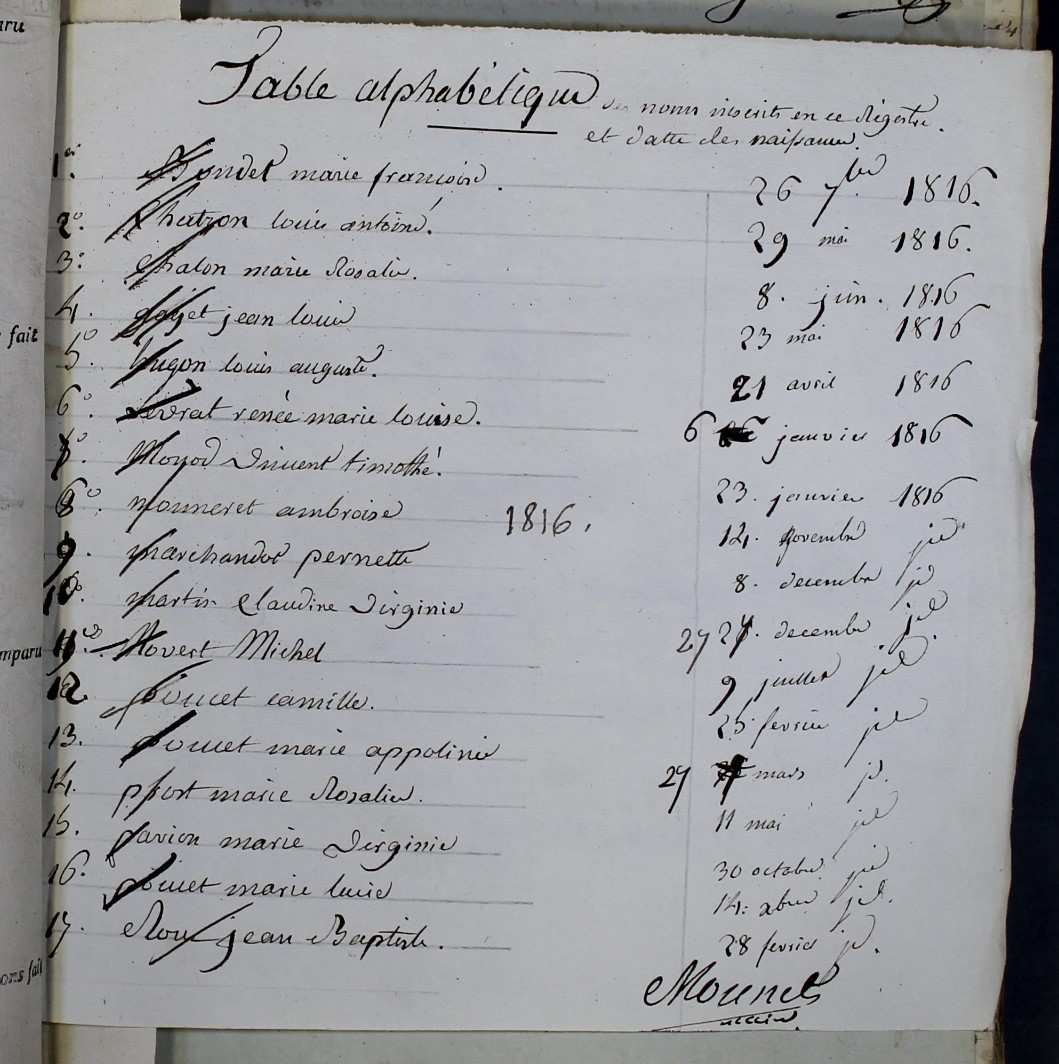 aru
Table alphabétique des noms inscrits en ce Régestre.
et datte des naissances.
1er. Bondet marie francoise. 26 7bre 1816.
2o. Chatron louis antoine. 29 mai 1816.
3o. Chalon marie Rosalie. 8. juin. 1816
4. jean louis 23 mai 1816
fait
5o. hugon louis auguste. 21 avril 1816
6o. Levrat renée marie louise. 6 janvier 1816
7o. Monod vincent timothé. 23. janvier 1816
8o. monneret ambroise 1816. 14. novembre id
9. marchandot pernette 8. decembre id
10o. martin Claudine Virginie 27 decembre id.
mparu
11o. Movert Michel 9 juillet id
12. poncet camille. 25 fevrier id
13. poncet marie appolinie 27 mars id.
14. marie Rosalie. 11 mai id
15. pavion marie Virginie 30 octobre id
16. poncet marie lucie 14. xbre id.
17. Roux jean Baptiste. 28 fevrier id.
ons fait